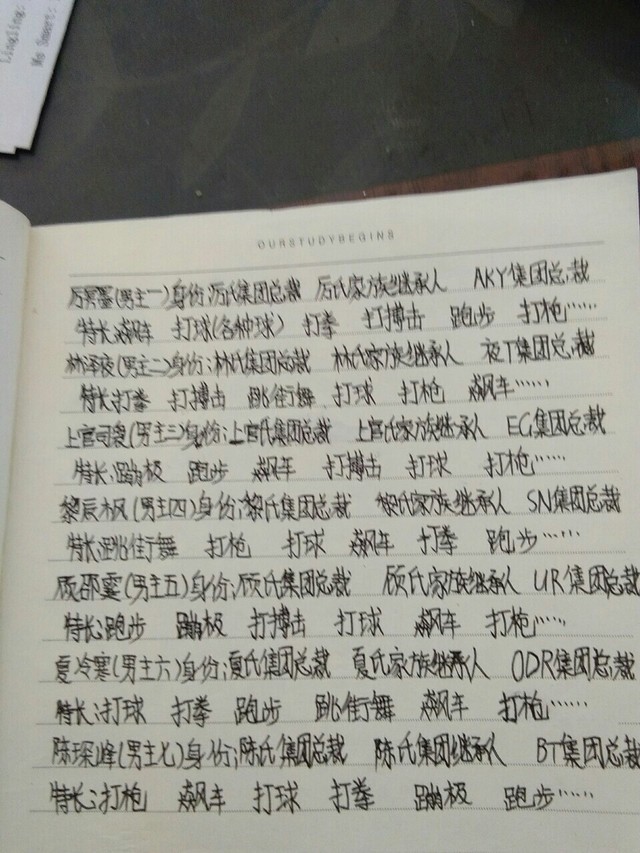 Lingling:
Ms Smart:
OURSTUDYBEGINS
厉冥(男主一)身份:厉氏集团总裁 厉氏家族继承人 AKY集团总裁
特长:飙车 打球(各种球) 打拳 打搏击 跑步 打枪……
林泽夜(男主二)身份:林氏集团总裁 林氏家族继承人 夜T集团总裁
特长:打拳 打搏击 跳街舞 打球 打枪 飙车……
上官司(男主三)身份:上官氏集团总裁 上官氏家族继承人 EG集团总裁
特长:蹦极 跑步 飙车 打搏击 打球 打枪……
黎辰枫(男主四)身份:黎氏集团总裁 黎氏家族继承人 SN集团总裁
特长:跳街舞 打枪 打球 飙车 打拳 跑步……
顾邵霆(男主五)身份:顾氏集团总裁 顾氏家族继承人 UR集团总裁
特长:跑步 蹦极 打搏击 打球 飙车 打枪……
夏冷寒(男主六)身份:夏氏集团总裁 夏氏家族继承人 ODR集团总裁
特长:打球 打拳 跑步 跳街舞 飙车 打枪……
陈琛峰(男主七)身份:陈氏集团总裁 陈氏集团继承人 BT集团总裁
特长:打枪 飙车 打球 打拳 蹦极 跑步……